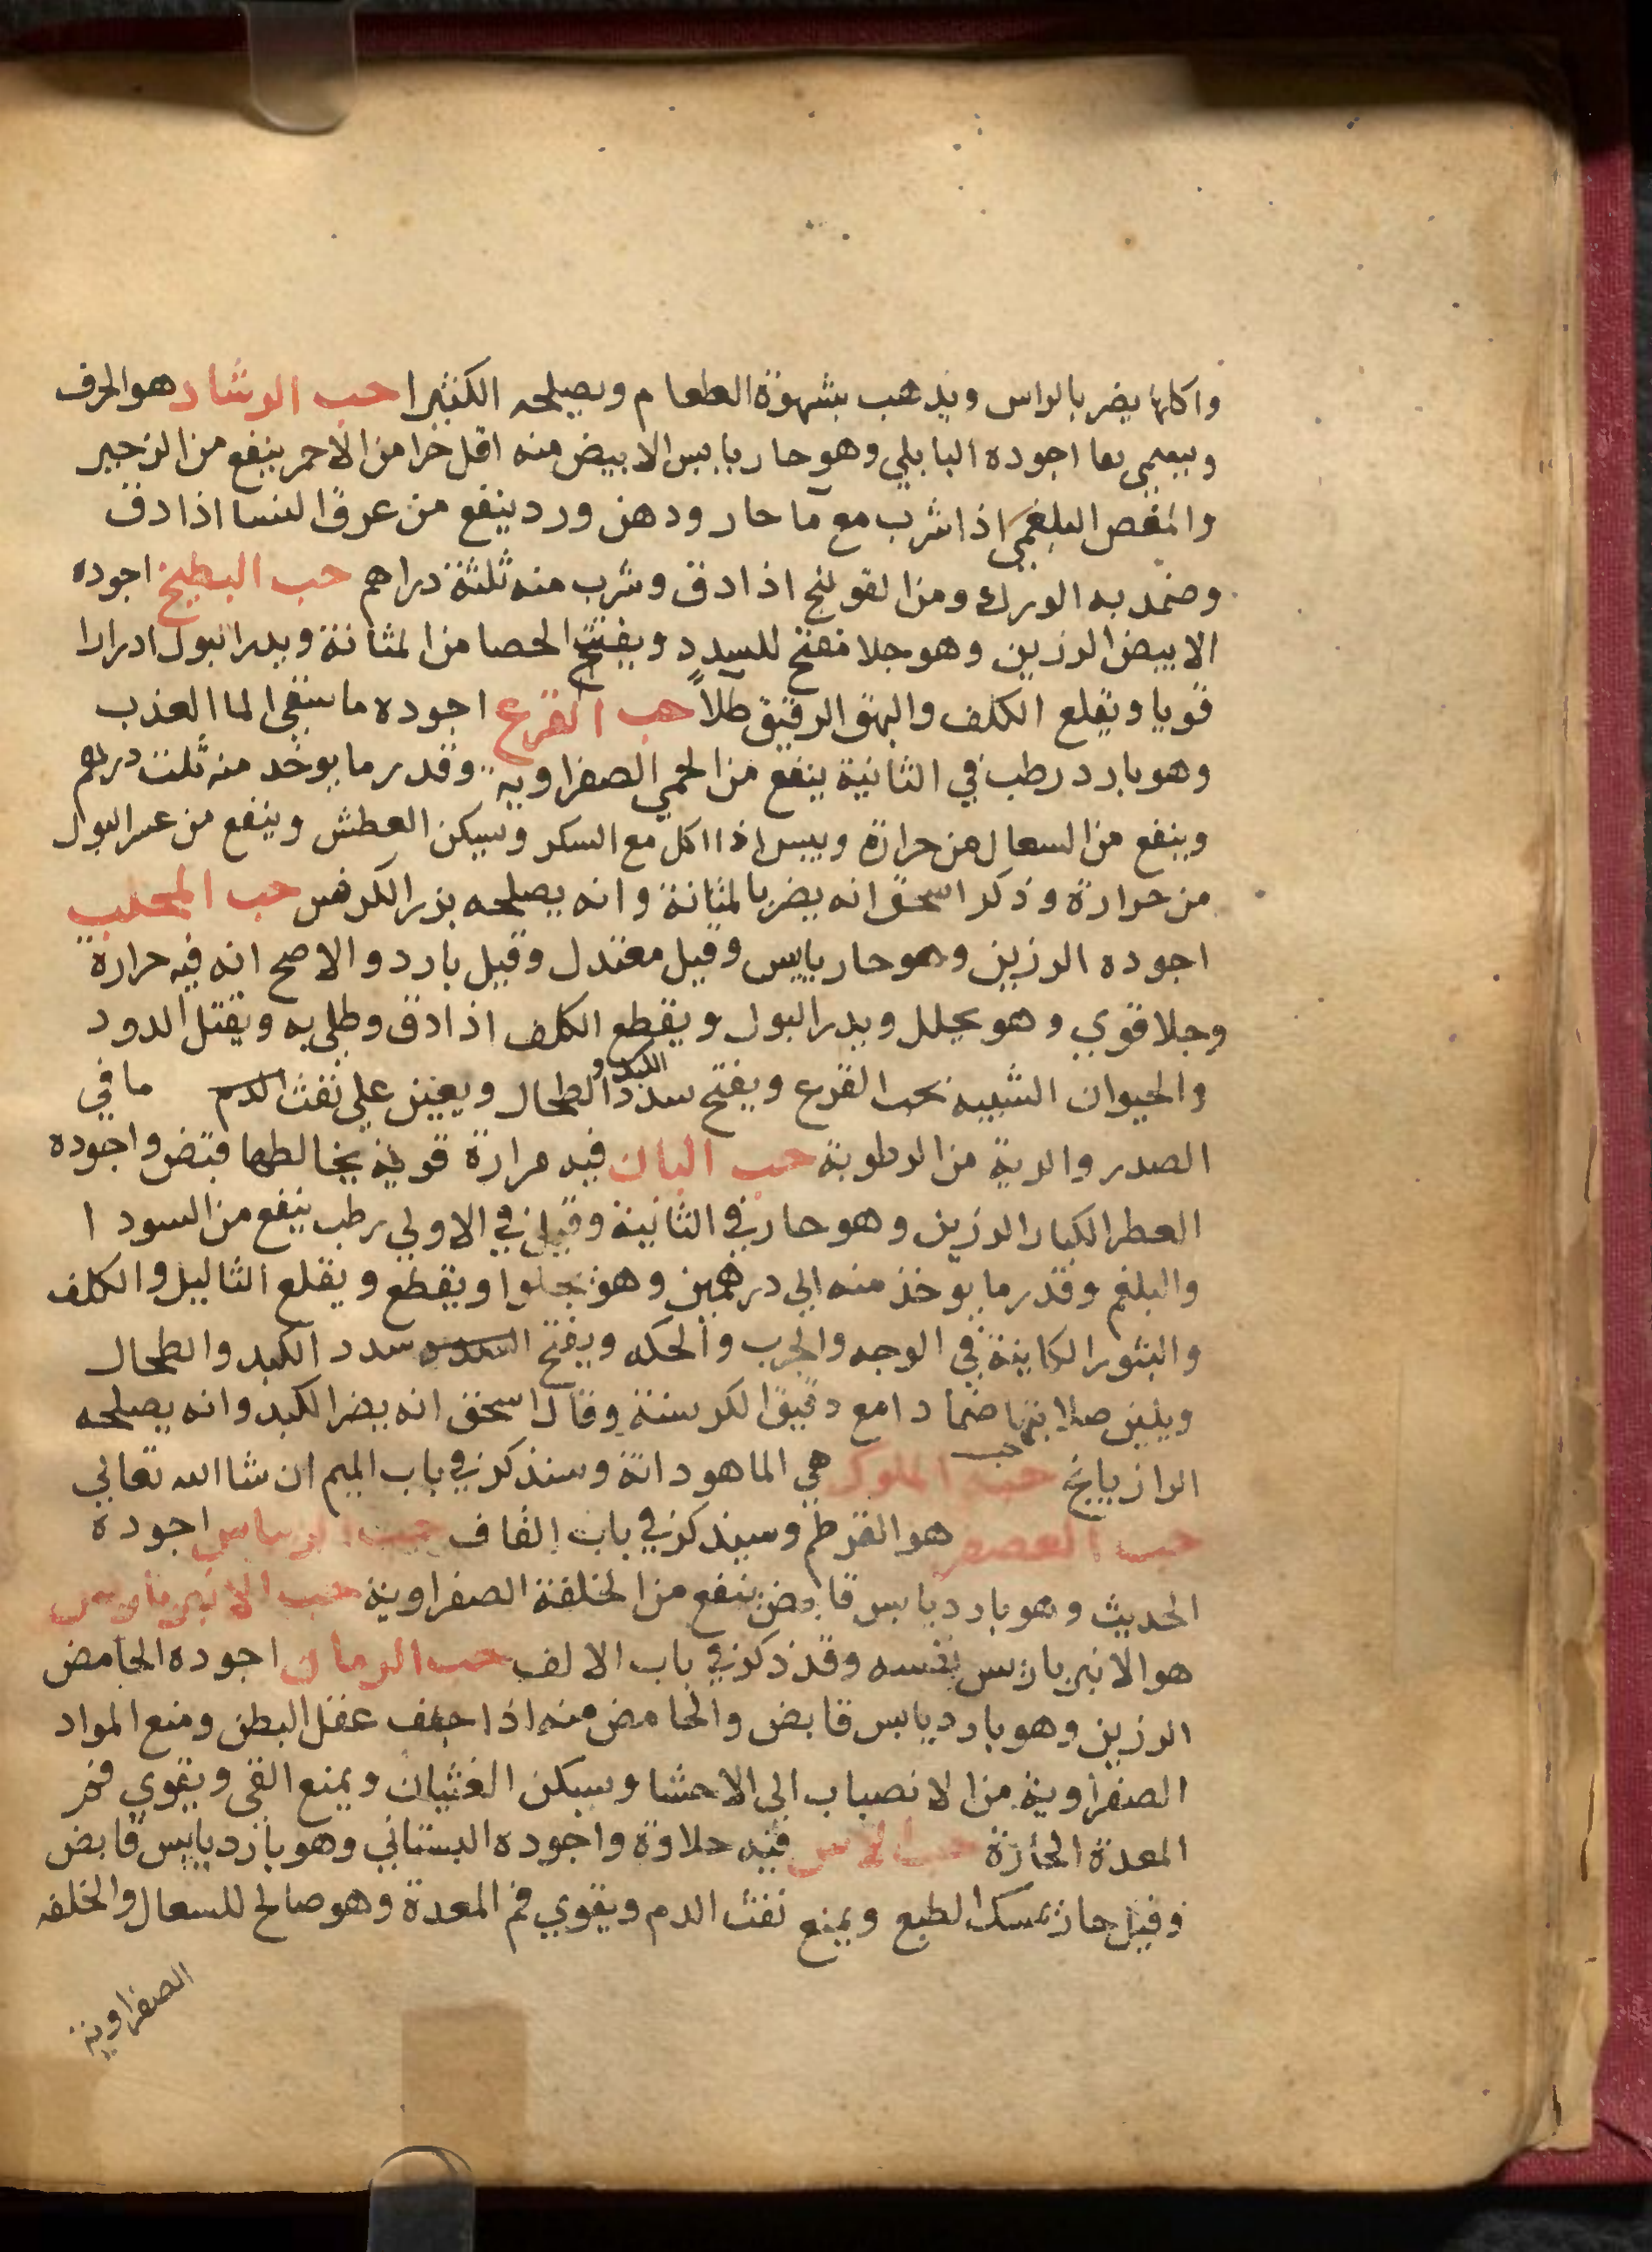 واكلها يضر بالراس ويذهب بشهوة الطعام ويصلحه الكثيرا حب الرشاد هو الحرف
ويسمى بها اجوده البابلي وهو حار يابس الابيض منه اقل حرا من الاحمر ينفع من الزحير
والمغص البلغمي اذا شرب مع ما حار ودهن ورد ينفع من عرق النسا اذا دق
وضمد به الورك ومن القولنج اذا دق وشرب منه ثلثة دراهم حب البطيخ اجوده
الابيض الرزين وهو جلا مفتح للسدد ويفتح الحصا من المثانة ويدر البول ادرارا
قويا ويقلع الكلف والبهق الرقيق طلاً حب القرع اجوده ما سقي الما العذب
وهو بارد رطب في الثانية ينفع من الحمي الصفراوية وقدر ما يوخد منه ثلث دراهم
وينفع من السعال من حرارة ويبس اذا اكل مع السكر ويسكن العطش وينفع من عسر البول
من حرارة وذكر اسحق انه يضر بالمثانة وانه يصلحه بزر الكرفس حب المحلب
اجوده الرزين وهو حار يابس وقيل معتدل وقيل بارد والاصح انه فيه حرارة
وجلا قوي وهو يحلل ويدر البول ويقطع الكلف اذا دق وطلي به ويقتل الدود
والحيوان الشبيه بحب القرع ويفتح سدد الكبد و الطحال ويعين على نفث الدم ما في
الصدر والرية من الرطوبة حب البان فيه مرارة قوية يخالطها قبض واجوده
العطر الكبار الرزين وهو حار في الثانية وقيل في الاولي رطب ينفع من السودا
والبلغم وقدر ما يوخذ منه الي درهمين وهو يجلوا ويقطع ويقلع الثاليل والكلف
والبثور الكاينة في الوجه والجرب والحكه ويفتح سدد الكبد والطحال
ويلين صلابتها ضمادا مع دقيق الكرسنة وقال اسحق انه يضر الكبد وانه يصلحه
الرازيانج حب حب الملوك هي الماهودانة وسنذكر في باب الميم ان شا الله تعالي
حب العصفر هو القرطم وسيذكر في باب القاف حب اجودة
الحديث وهو بارد يابس قابض ينفع من الخلفة الصفراوية حب الانبرباريس
هو الانبرباريس نفسه وقد ذكر في باب الالف حب الرمان اجوده الحامض
الرزين وهو بارد يابس قابض والحامض منه اذا جفف عقل البطن ومنع المواد
الصفراوية من الانصباب الى الاحشا ويسكن الغثيان ويمنع القي ويقوي فم
المعدة الحارة حب الاس فيه حلاوة واجوده البستاني وهو بارد يابس قابض
وقيل حار يمسك الطبع ويمنع نفث الدم ويقوي فم المعدة وهو صالح للسعال والخلفه
الصفراوية